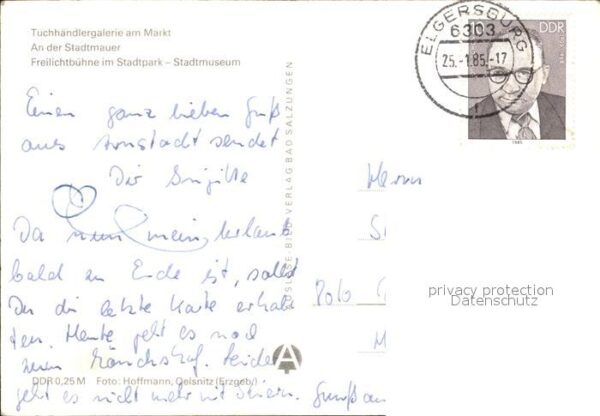 Tuchhändlergalerie am Markt
An der Stadtmauer
Freilichtbühne im Stadtpark – Stadtmuseum
DDR
1985
ELGERSBURG
6303
25.-1.85.-17
Einen ganz lieben Gruß
aus Arnstadt sendet
Dir Brigitte
Da nun mein Urlaub
bald zu Ende ist, sollst
Du die letzte Karte erhal
ten. Heute geht es nach
leider
geht es nicht mehr mit
Gruß an
Herrn
BILD-VERLAG BAD SALZUNGEN
privacy protection
Datenschutz
DDR 0,25 M Foto: Hoffmann, Oelsnitz (Erzgeb.)